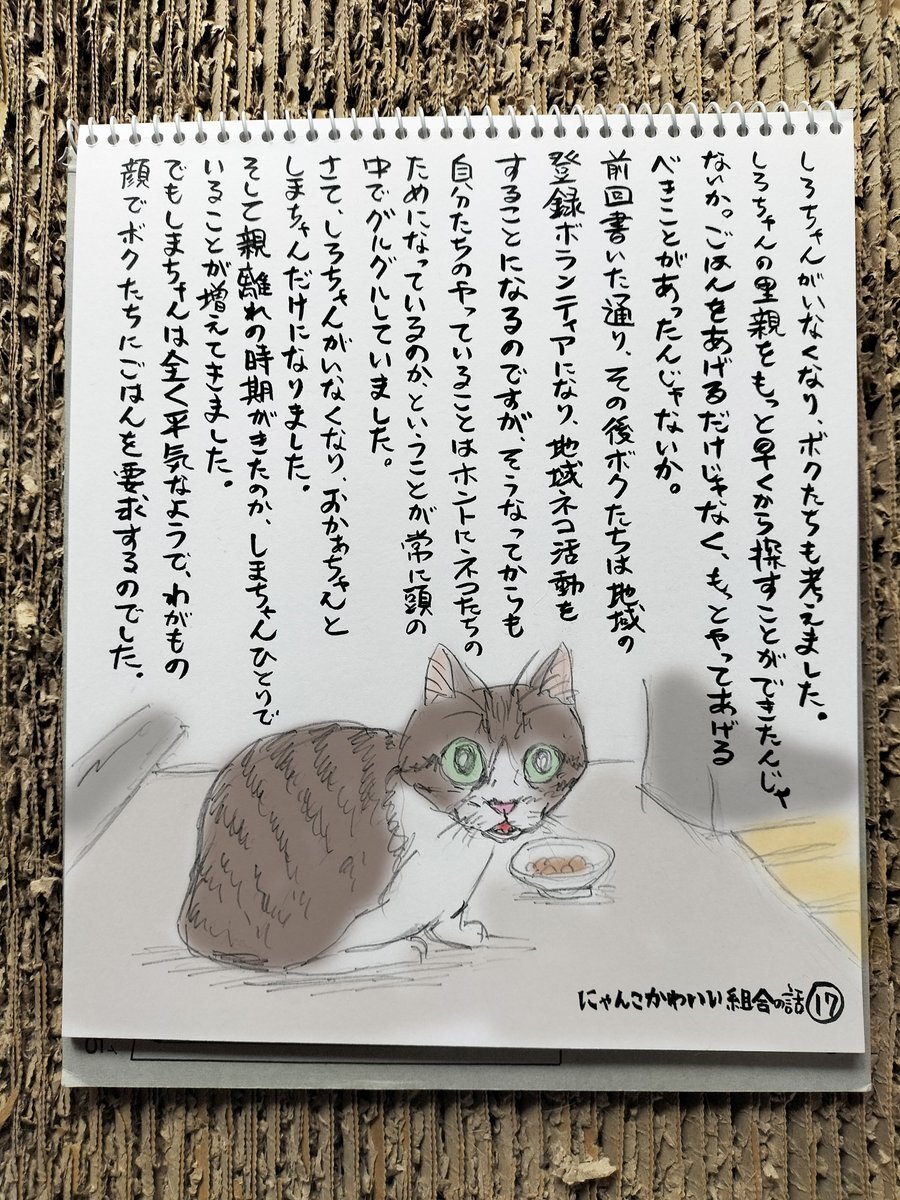 しろちゃんがいなくなり、ボクたちも考えました。
しろちゃんの里親をもっと早くから探すことができたんじゃ
ないか。ごはんをあげるだけじゃなく、もっとやってあげる
べきことがあったんじゃないか。
前回書いた通り、その後ボクたちは地域の
登録ボランティアになり、地域ネコ活動を
することになるのですが、そうなってからも
自分たちのやっていることはホントにネコたちの
ためになっているのか、ということが常に頭の
中でグルグルしていました。
さて、しろちゃんがいなくなり、おかぁちゃんと
しまちゃんだけになりました。
そして親離れの時期がきたのか、しまちゃんひとりで
いることが増えてきました。
でもしまちゃんは全く平気なようで、わがもの
顔でボクたちにごはんを要求するのでした。
にゃんこかわいい組合の話 17